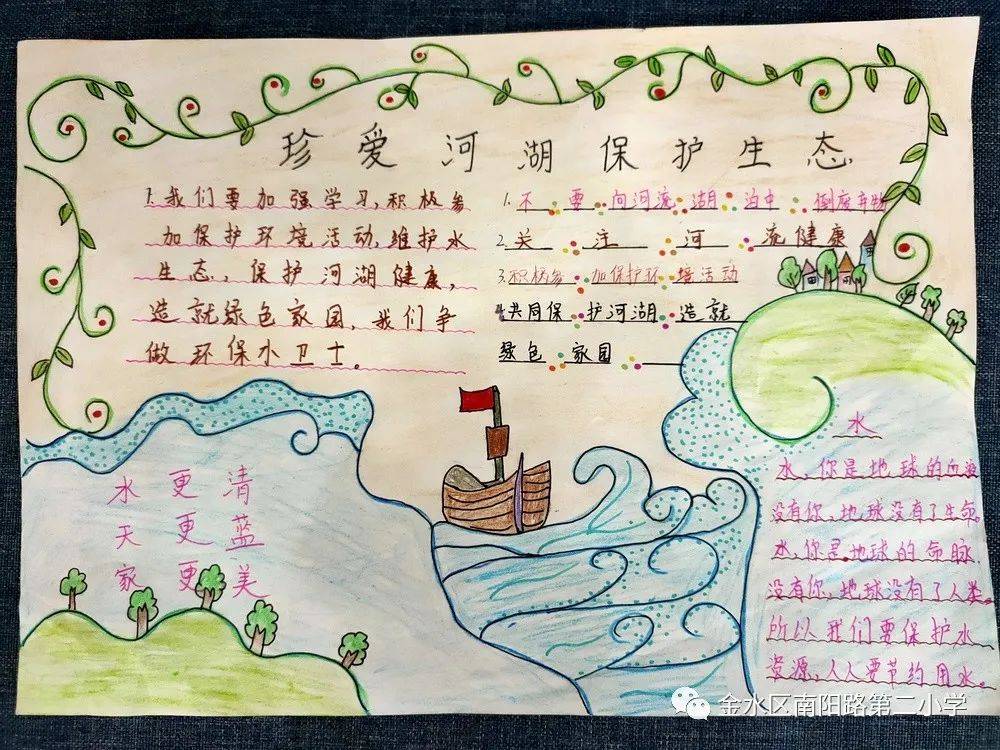 珍爱河湖保护生态
1.我们要加强学习,积极参
加保护环境活动,维护水
生态,保护河湖健康,
造就绿色家园,我们争
做环保小卫士。
1.不要向河流湖泊中倒废弃物
2.关注河流健康
3.积极参加保护环境活动
4.共同保护河湖造就
绿色家园
水更清
天更蓝
家更美
水
水,你是地球的血液
没有你,地球没有了生命。
水,你是地球的命脉
没有你,地球没有了人类。
所以我们要保护水
资源,人人要节约用水。
金水区南阳路第二小学